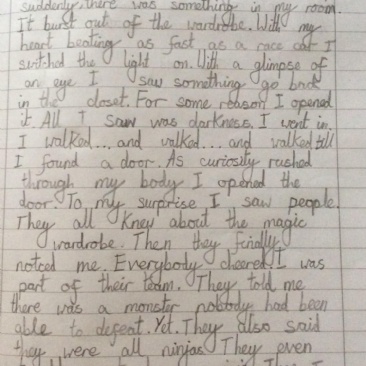 suddenly, there was something in my room.
It burst out of the wardrobe. With my
heart beating as fast as a race car I
switchd the light on. With a glimpse of
an eye I saw something go back
in the closet. For some reason I opened
it. All I saw was darkness. I went in.
I walked... and walked... and walked till
I found a door. As curiosity rushed
through my body I opened the
door. To my surprise I saw people.
They all knew about the magic
wardrobe. Then they finally
noticed me. Everybody cheered! I was
part of their team. They told me
there was a monster nobody had been
able to defeat. Yet. They also said
they were all ninjas. They even